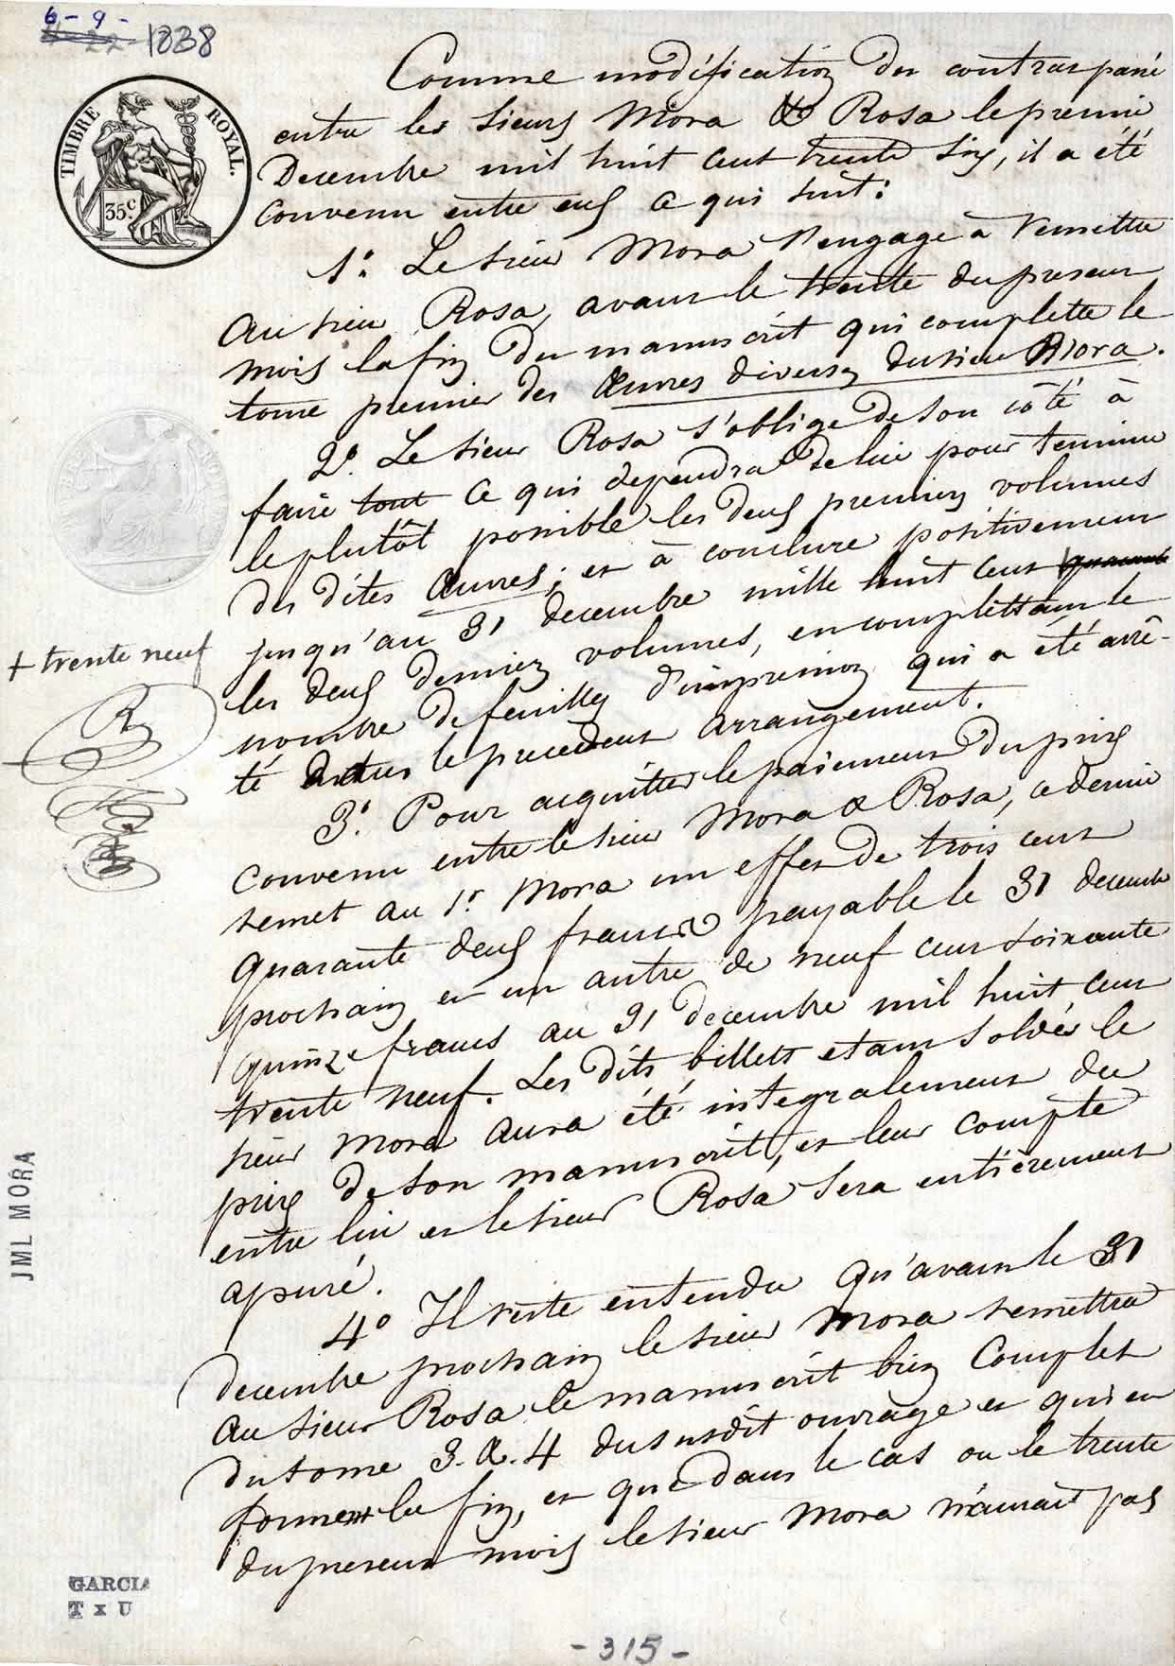 6 - 9 -
1838
TIMBRE ROYAL.
35c
Comme modification du contrat passé
entre les sieurs Mora & Rosa le premier
Decembre mil huit cent trente six, il a été
convenu entre eux ce qui suit:
1º. Le sieur Mora s'engage à remettre
au sieur Rosa, avant le trente du present
mois la fin du manuscrit qui complette le
tome premier des Œuvres diverses du sieur Mora.
2º. Le sieur Rosa s'oblige de son côté à
faire tout ce qui dependra de lui pour terminer
le plutôt possible les deux premiers volumes
des dites Œuvres; et à conclure positivement
jusqu'au 31 decembre mille huit cent quarante
+ trente neuf
les deux derniers volumes, en complettant le
nombre de feuilles d'impression qui a été arrê-
té dans le precedent arrangement.
3º. Pour acquitter le paiement du prix
convenu entre le sieur Mora & Rosa, ce dernier
remet au Sr. Mora un effet de trois cent
quarante deux francs payable le 31 decembre
prochain et un autre de neuf cent soixante
quinze francs au 31 decembre mil huit cent
trente neuf. Les dits billets etant soldés le
sieur Mora aura été integralement du
prix de son manuscrit, et leur compte
entre lui et le sieur Rosa sera entièrement
apuré.
4º Il reste entendu qu'avant le 31
decembre prochain le sieur Mora remettra
au sieur Rosa le manuscrit bien complet
du tome 3. & 4 du susdit ouvrage et qui en
forment la fin, et que dans le cas ou le trente
du present mois le sieur Mora n'aurait pas
JML MORA
GARCIA
T x U
- 315 -